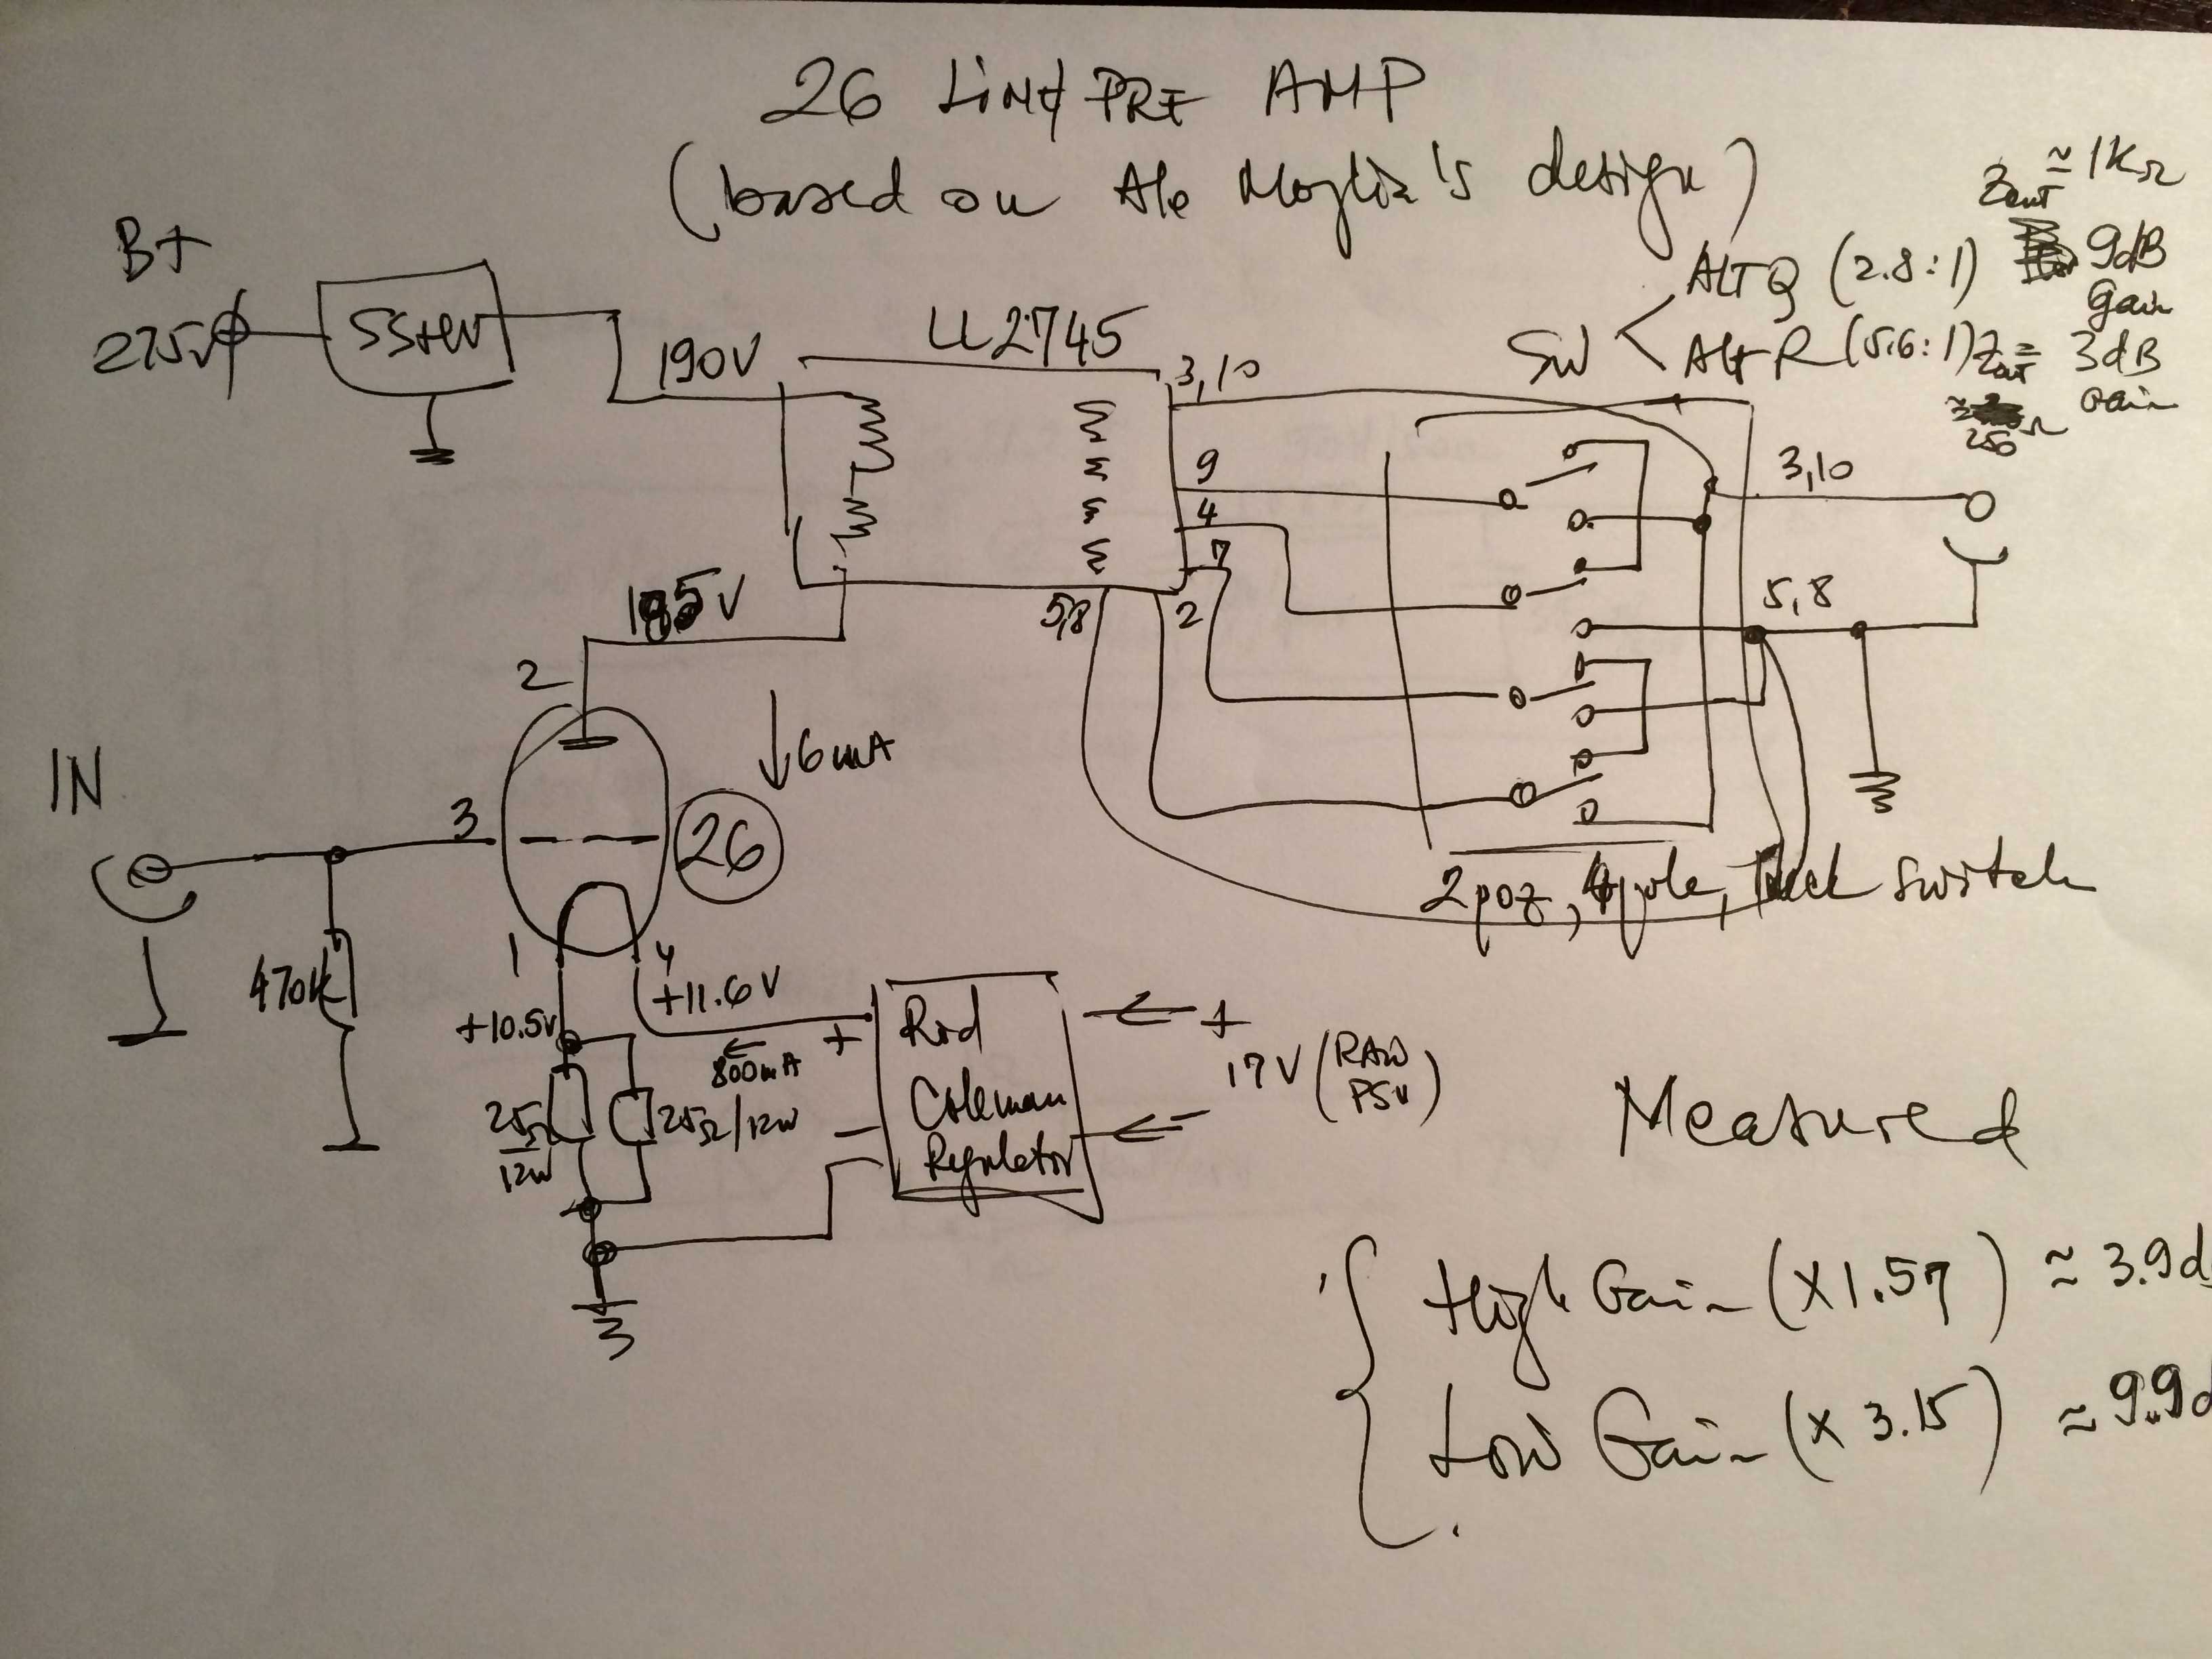 26 Line PRE AMP
(based on Ale Moglia's design)
Zout ≃ 1KΩ
SW
ALT Q (2.8:1) 9dB gain
Alt R (5.6:1) Zout = 3dB gain
≈ 250 Ω
B+
275V
190V
LL2745
3,10
9
4
7
2
5,8
3,10
5,8
185V
2
↓6mA
26
IN
3
2poz, 4pole, switch
1
4
470K
+10.5V
+11.6V
800mA
+
-
Rod
Coleman
Regulator
+
-
17V (RAW PSU)
25Ω
12W
25Ω/12W
Measured
High Gain (X1.57) ≈ 3.9d
Low Gain (X 3.15) ≈ 9.9d